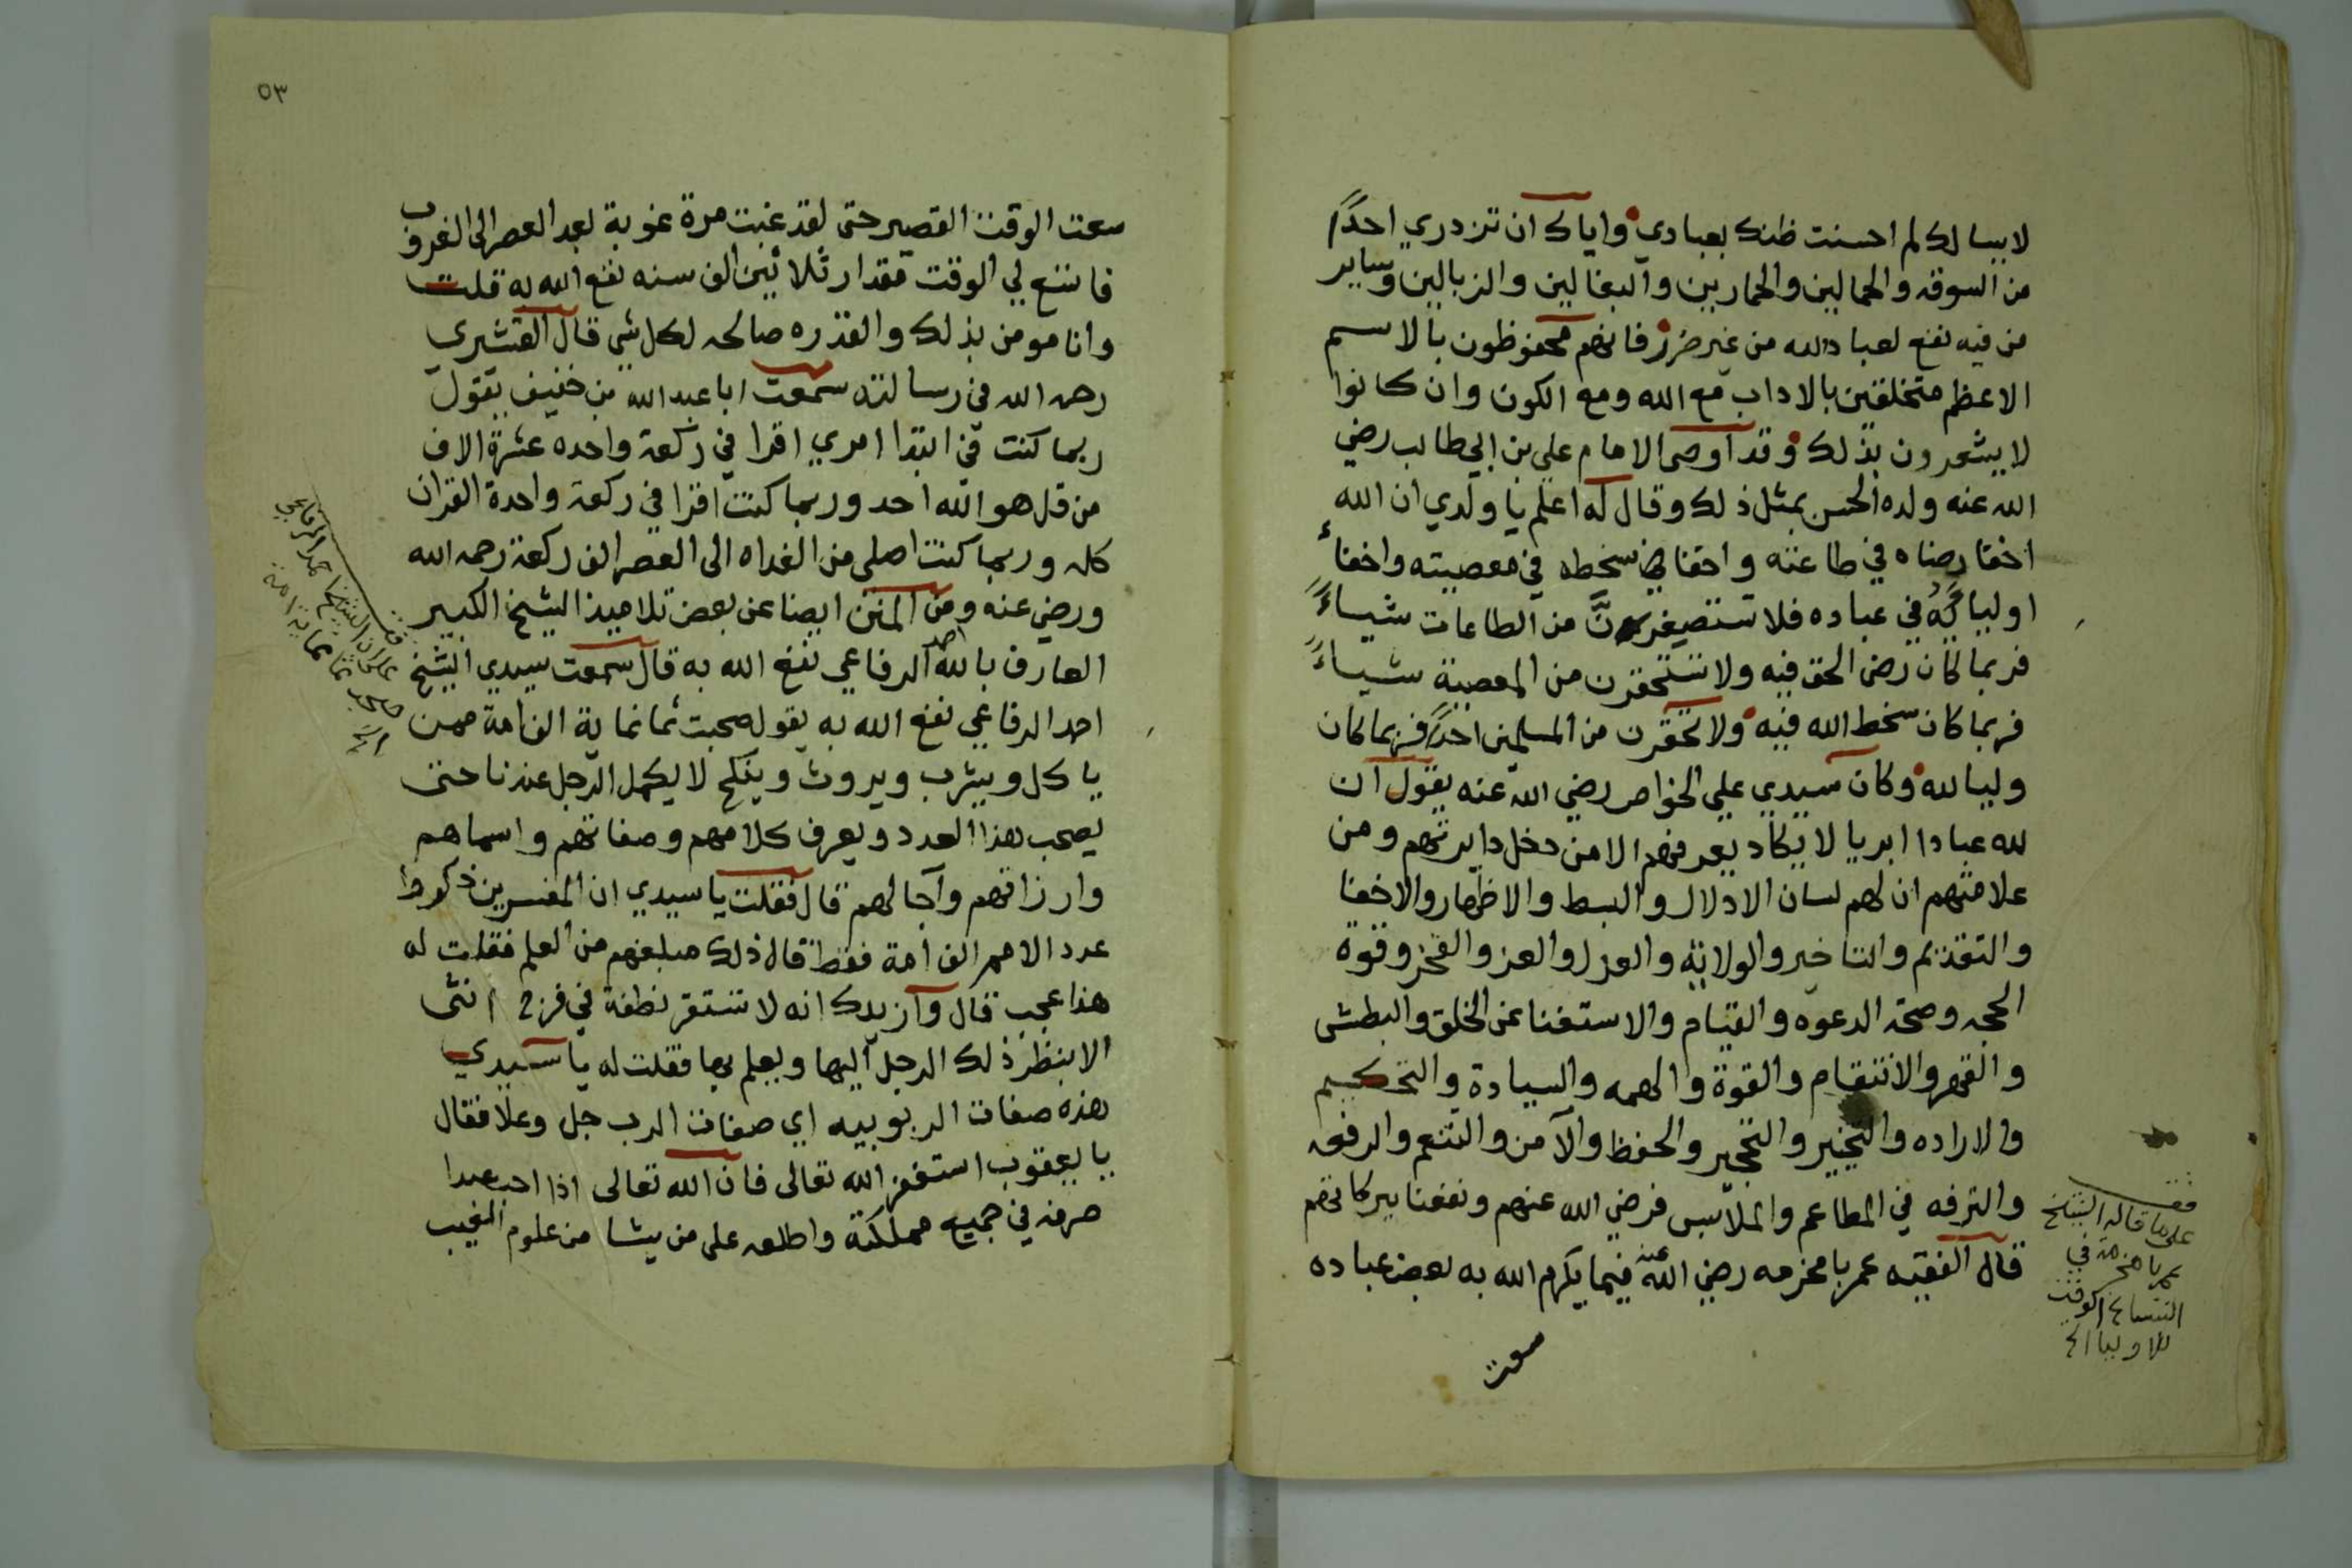 لا يسالك لم احسنت ظنك بعبادي واياك ان تزدري احدًا
من السوقه والحمالين والحمارين والبغالين والزبالين وساير
من فيه نفع لعباد الله من غير ضرر فانهم محفوظون بالاسم
الاعظم متخلقين بالاداب مع الله ومع الكون وان كانوا
لا يشعرون بذلك وقد اوصى الامام علي بن ابي طالب رضي
الله عنه ولده الحسن بمثل ذلك وقال له اعلم يا ولدي ان الله
اخفا رضاه في طاعته واخفا سخطه في معصيته واخفاء
اولياءَهُ في عباده فلا تستصغرنَّ من الطاعات شياءً
فربما كان رضى الحق فيه ولا تستحقرن من المعصية شياءً
فربما كان سخط الله فيه ولا تحقرن من المسلمين احدًا فربما كان
وليا لله وكان سيدي علي الخواص رضي الله عنه يقول ان
لله عبادا ابريا لا يكاد يعرفهم الا من دخل دايرتهم ومن
علامتهم ان لهم لسان الادلال والبسط والاظهار والاخفا
والتقديم والتاخير والولاية والعزل والعز والفخر وقوة
الحجه وصحة الدعوه والقيام والاستغنا عن الخلق والبطش
والقهر والانتقام والقوة والهمه والسيادة والتحكيم
والاراده والتخير والتجبر والحفظ والآمن والتنعم والرفعه
والترفه في المطاعم والملابس فرضي الله عنهم ونفعنا ببركاتهم
قال الفقيه عمر بامخرمه رضي الله عنه فيما يكرم الله به بعض عباده
سعت
قف
على ما قاله الشيخ
عمر بامخرمة في
اتساع الوقت
للاوليا الخ
٥٣
سعت الوقت القصير حتى لقد غبت مرة غوبة بعد العصر الى الغروب
فاتسع لي الوقت مقدار ثلاثين الف سنه نفع الله به قلت
وانا مومن بذلك والقدره صالحه لكل شي قال القشيري
رحمه الله في رسالته سمعت ابا عبد الله بن خفيف يقول
ربما كنت في ابتدا امري اقرا في ركعة واحده عشرة الاف
من قل هو الله احد وربما كنت اقرا في ركعة واحدة القران
كله وربما كنت اصلي من الغداه الى العصر الف ركعة رحمه الله
ورضي عنه ومن المنن ايضا عن بعض تلاميذ الشيخ الكبير
العارف بالله احمد الرفاعي نفع الله به قال سمعت سيدي الشيخ
احمد الرفاعي نفع الله به يقول صحبت ثمانماية الف امة ممن
ياكل ويشرب ويروث وينكح لا يكمل الرجل عندنا حتى
يصحب هذا العدد ويعرف كلامهم وصفاتهم واسماهم
وارزاقهم وآجالهم قال فقلت يا سيدي ان المفسرين ذكروا
عدد الامم الف امة فقط قال ذلك مبلغهم من العلم فقلت له
هذا عجب قال وازيدك انه لا تستقر نطفة في فرج انثى
الا ينظر ذلك الرجل اليها ويعلم بها فقلت له يا سيدي
هذه صفات الربوبيه اي صفات الرب جل وعلا فقال
يا يعقوب استغفر الله تعالى فان الله تعالى اذا احب عبدا
صرفه في جميع مملكته واطلعه على من يشا من علوم الغيب
قف
على ان الشيخ احمد الرفاعي
صحب ثمانماية الف امة
الخ